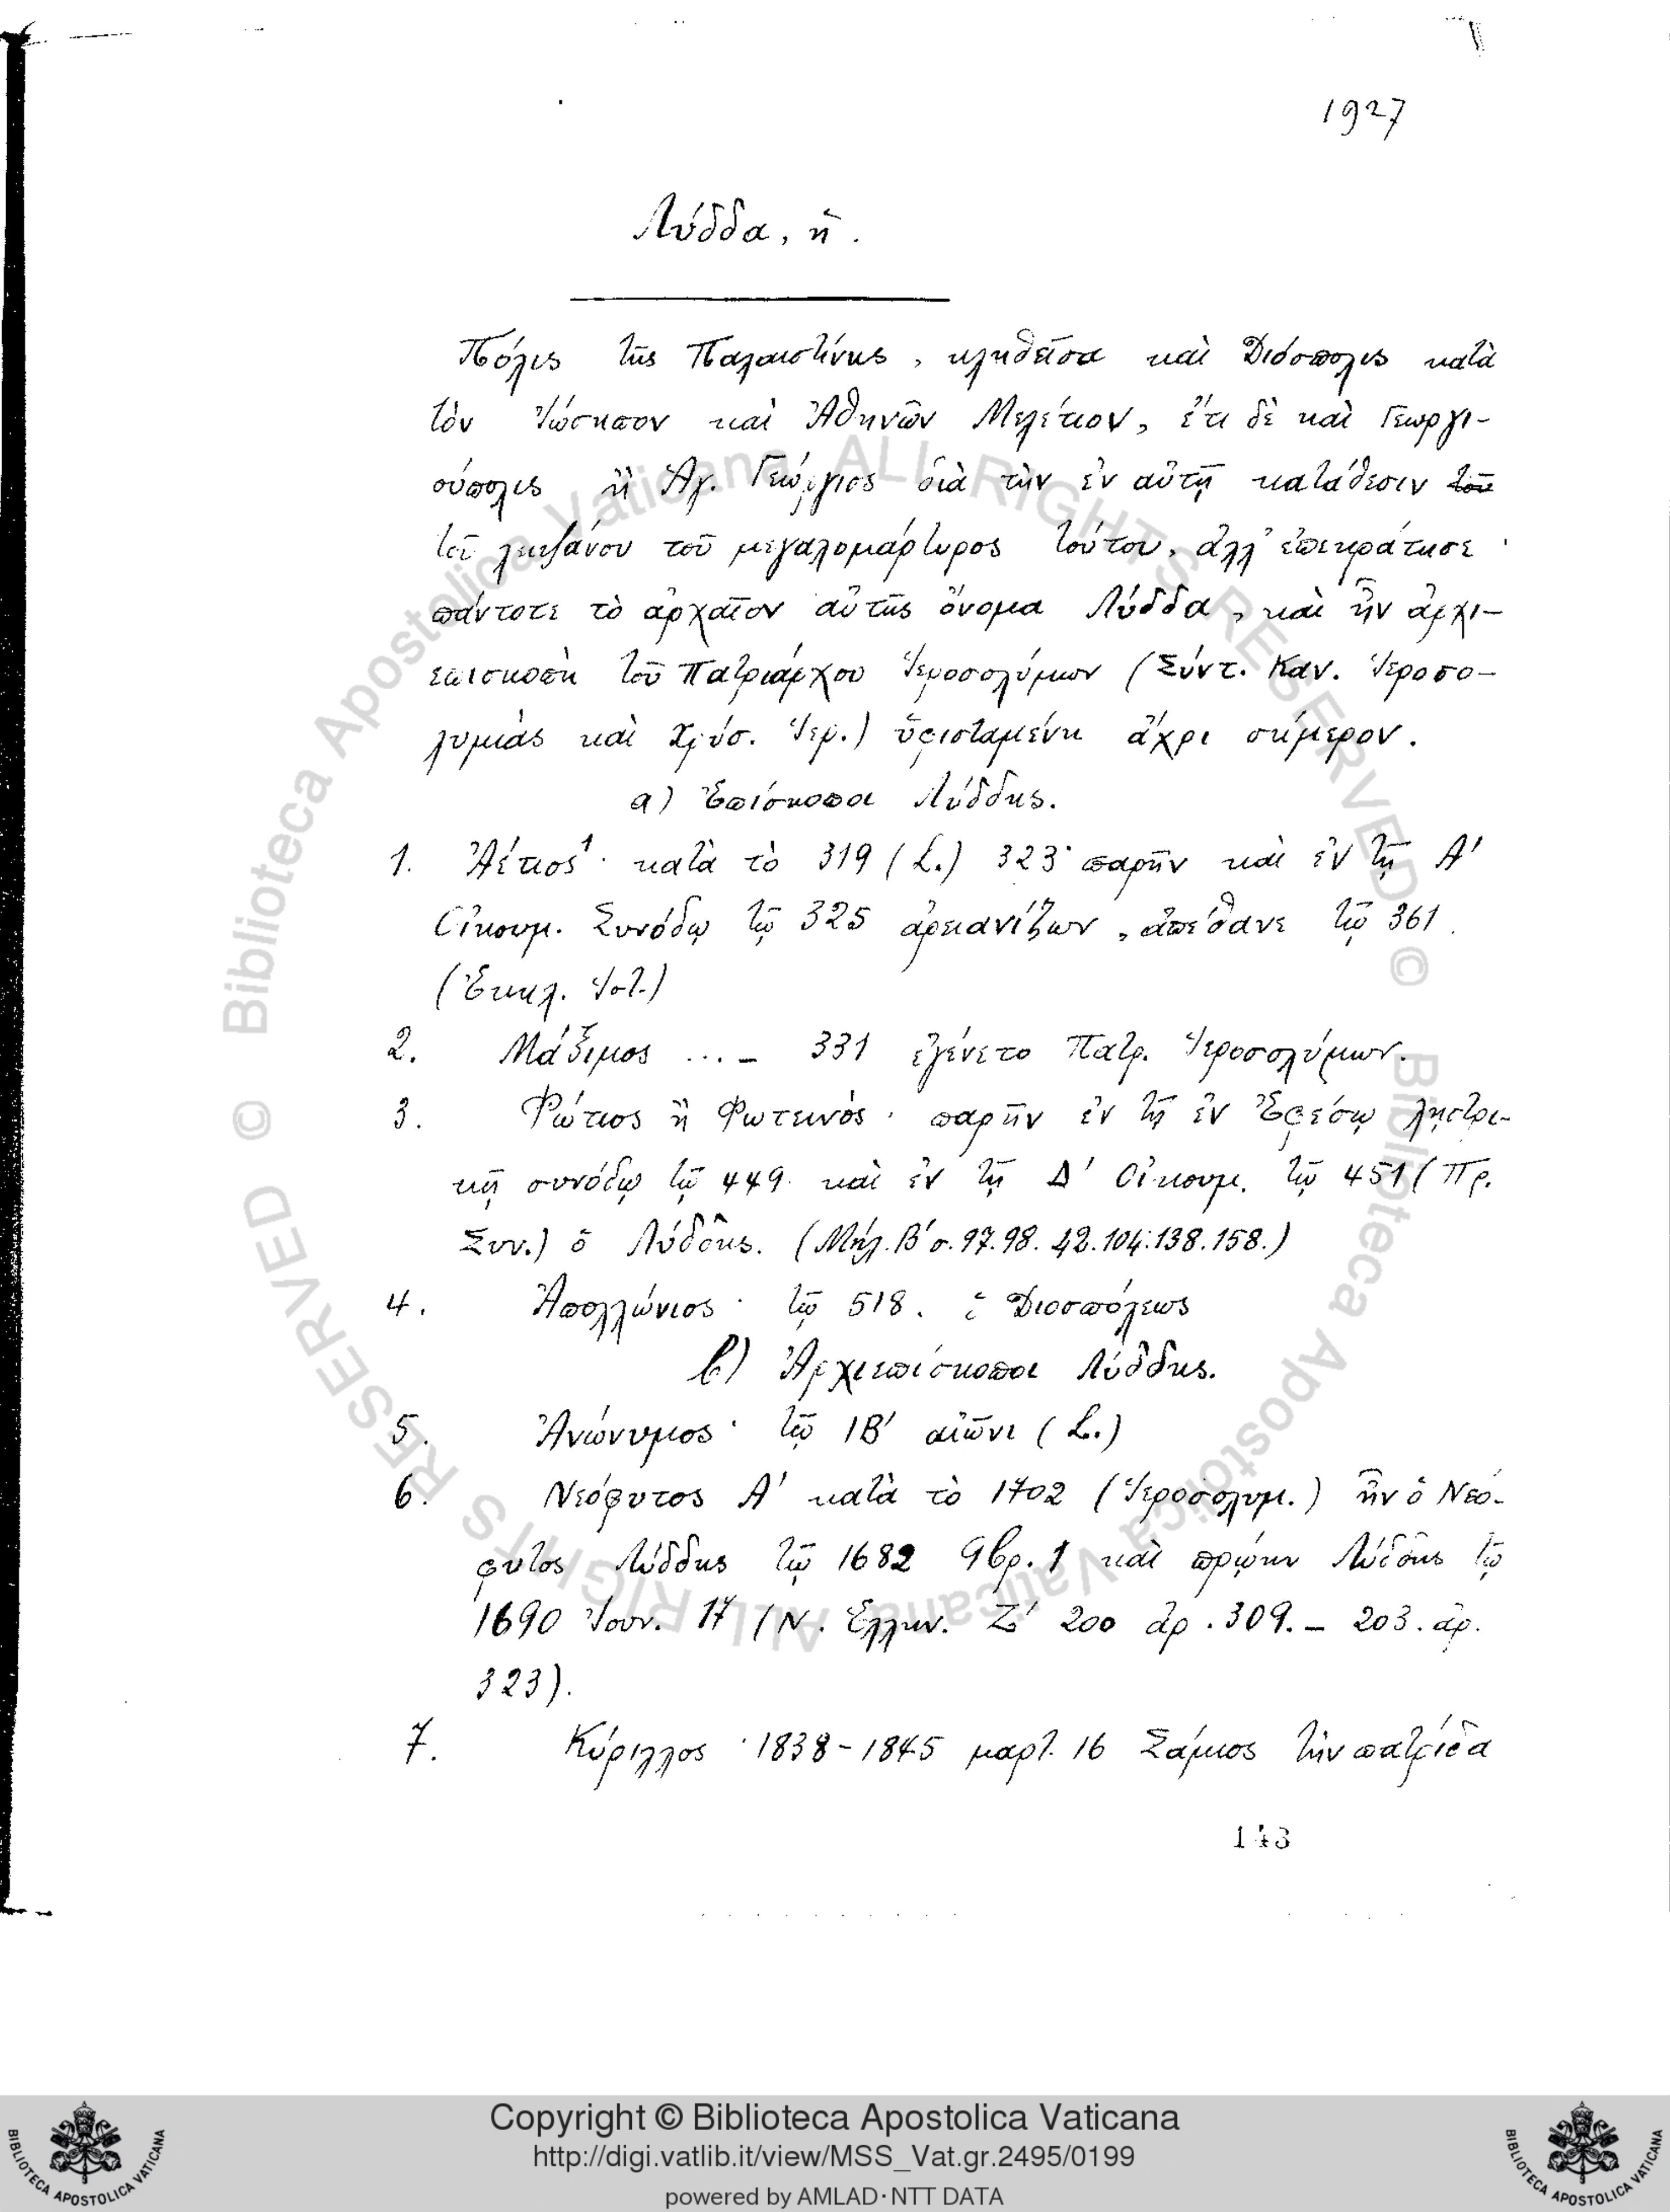 1927
Λύδδα, ἡ.
Πόλις τῆς Παλαιστίνης, κληθεῖσα καὶ Διόσπολις κατὰ
τὸν Ἰώσηπον καὶ Ἀθηνῶν Μελέτιον, ἔτι δὲ καὶ Γεωργι-
ούπολις ἢ Ἅγ. Γεώργιος διὰ τὴν ἐν αὐτῇ κατάθεσιν τοῦ
τοῦ λειψάνου τοῦ μεγαλομάρτυρος τούτου, ἀλλ' ἐπεκράτησε
πάντοτε τὸ ἀρχαῖον αὐτῆς ὄνομα Λύδδα, καὶ ἦν ἀρχι-
επισκοπὴ τοῦ Πατριάρχου Ἱεροσολύμων (Σύντ. Καν. Ἱεροσο-
λυμιὰς καὶ Χρύσ. Ἱερ.) ὑφισταμένη ἄχρι σήμερον.
α) Ἐπίσκοποι Λύδδης.
1. Ἀέτιος¹· κατὰ τὸ 319 (L.) 323· παρῆν καὶ ἐν τῇ Α'
Οἰκουμ. Συνόδῳ τῷ 325 ἀρειανίζων, ἀπέθανε τῷ 361.
(Ἐκκλ. Ἱστ.)
2. Μάξιμος ... – 331 ἐγένετο Πατρ. Ἱεροσολύμων.
3. Φώτιος ἢ Φωτεινός· παρῆν ἐν τῇ ἐν Ἐφέσῳ λῃστρι-
κῇ συνόδῳ τῷ 449 καὶ ἐν τῇ Δ' Οἰκουμ. τῷ 451 (Πρ.
Συν.) ὁ Λύδδης. (Μήλ. Β' σ. 97. 98. 42. 104. 138. 158.)
4. Ἀπολλώνιος· τῷ 518. ὁ Διοσπόλεως
β) Ἀρχιεπίσκοποι Λύδδης.
5. Ἀνώνυμος· τῷ ΙΒ' αἰῶνι (L.)
6. Νεόφυτος Α' κατὰ τὸ 1702 (Ἱεροσολυμ.) ἦν ὁ Νεό-
φυτος Λύδδης τῷ 1682 9βρ. 1 καὶ πρώην Λύδδης τῷ
1690 Ἰουν. 17 (Ν. Ἑλλην. Ζ' 200 ἀρ. 309. – 203. ἀρ.
323).
7. Κύριλλος· 1838-1845 μαρτ. 16 Σάμιος τὴν πατρίδα
143
© Biblioteca Apostolica Vaticana ALL RIGHTS RESERVED © Biblioteca Apostolica Vaticana ALL RIGHTS RESERVED
Copyright © Biblioteca Apostolica Vaticana
http://digi.vatlib.it/view/MSS_Vat.gr.2495/0199
powered by AMLAD·NTT DATA
BIBLIOTECA APOSTOLICA VATICANA
BIBLIOTECA APOSTOLICA VATICANA